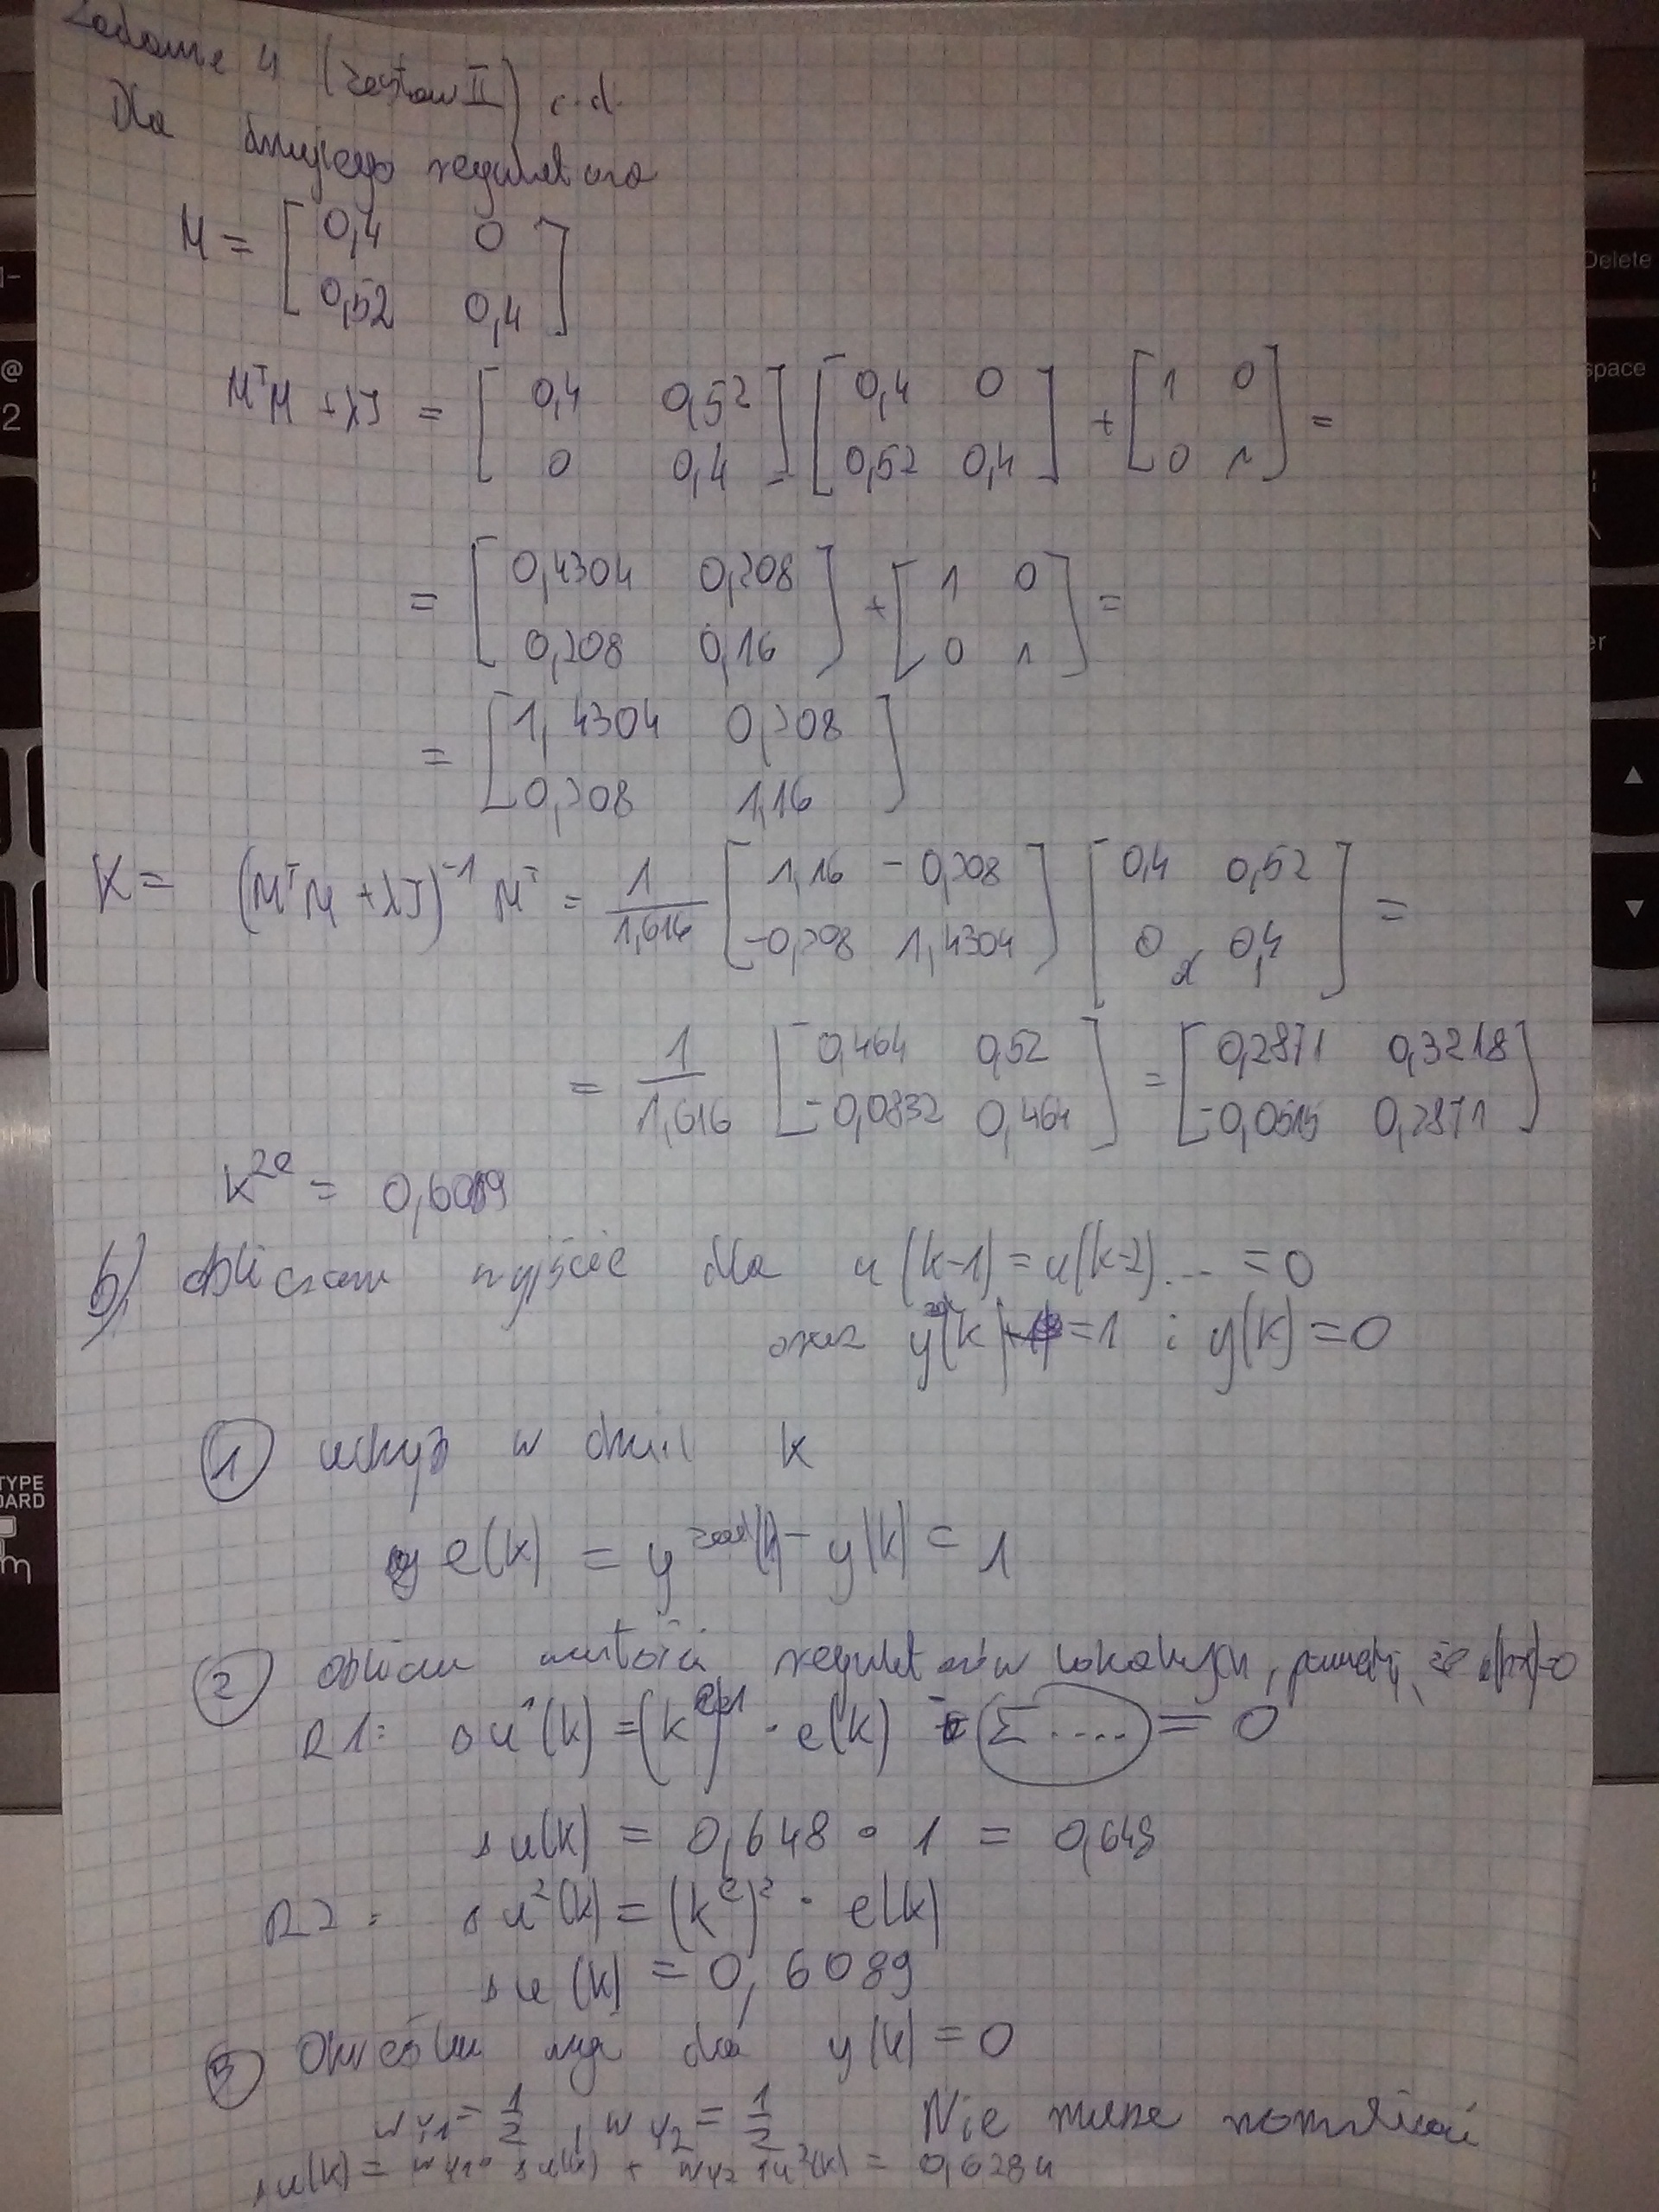 Zadanie 4 (zestaw II) c.d.
Dla drugiego regulatora
M = [ 0,4 0 ; 0,52 0,4 ]
MᵀM + λI = [ 0,4 0,52 ; 0 0,4 ] [ 0,4 0 ; 0,52 0,4 ] + [ 1 0 ; 0 1 ] =
= [ 0,4304 0,208 ; 0,208 0,16 ] + [ 1 0 ; 0 1 ] =
= [ 1,4304 0,208 ; 0,208 1,16 ]
K = (MᵀM + λI)⁻¹ Mᵀ = 1/1,616 [ 1,16 -0,208 ; -0,208 1,4304 ] [ 0,4 0,52 ; 0 0,4 ] =
= 1/1,616 [ 0,464 0,52 ; -0,0832 0,464 ] = [ 0,2871 0,3218 ; -0,0515 0,2871 ]
K²ᵉ = 0,6089
b) obliczam wyjście dla u(k-1) = u(k-2) ... = 0
oraz yᶻᵃᵈ(k) = 1 i y(k) = 0
① uchyb w chwili k
e(k) = yᶻᵃᵈ(k) - y(k) = 1
② obliczam wartości regulatorów lokalnych, że
R1: Δu¹(k) = (kᵉ)¹ · e(k) - (Σ ....) = 0
Δu(k) = 0,648 · 1 = 0,648
R2: Δu²(k) = (kᵉ)² · e(k)
Δu(k) = 0,6089
③ Określam wagi dla y(k) = 0
wy1 = 1/2 , wy2 = 1/2 Nie muszę normalizować
Δu(k) = wy1 · Δu(k) + wy2 Δu²(k) = 0,6284
Delete
@
2
space
er
TYPE
OARD
m